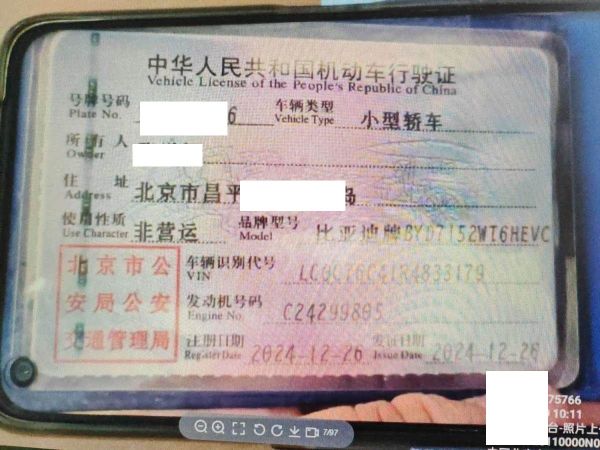 中华人民共和国机动车行驶证
Vehicle License of the People's Republic of China
号牌号码 6 车辆类型 小型轿车
Plate No. Vehicle Type
所有人
Owner
住址 北京市昌平 岛
Address
使用性质 非营运 品牌型号 比亚迪牌BYD7152WT6HEVC
Use Character Model
北京市公安局公安交通管理局
车辆识别代号
VIN
发动机号码 C24299805
Engine No.
注册日期 2024-12-26 发证日期 2024-12-26
Register Date Issue Date
7/97
75766
10:11
台-照片上
110000N0